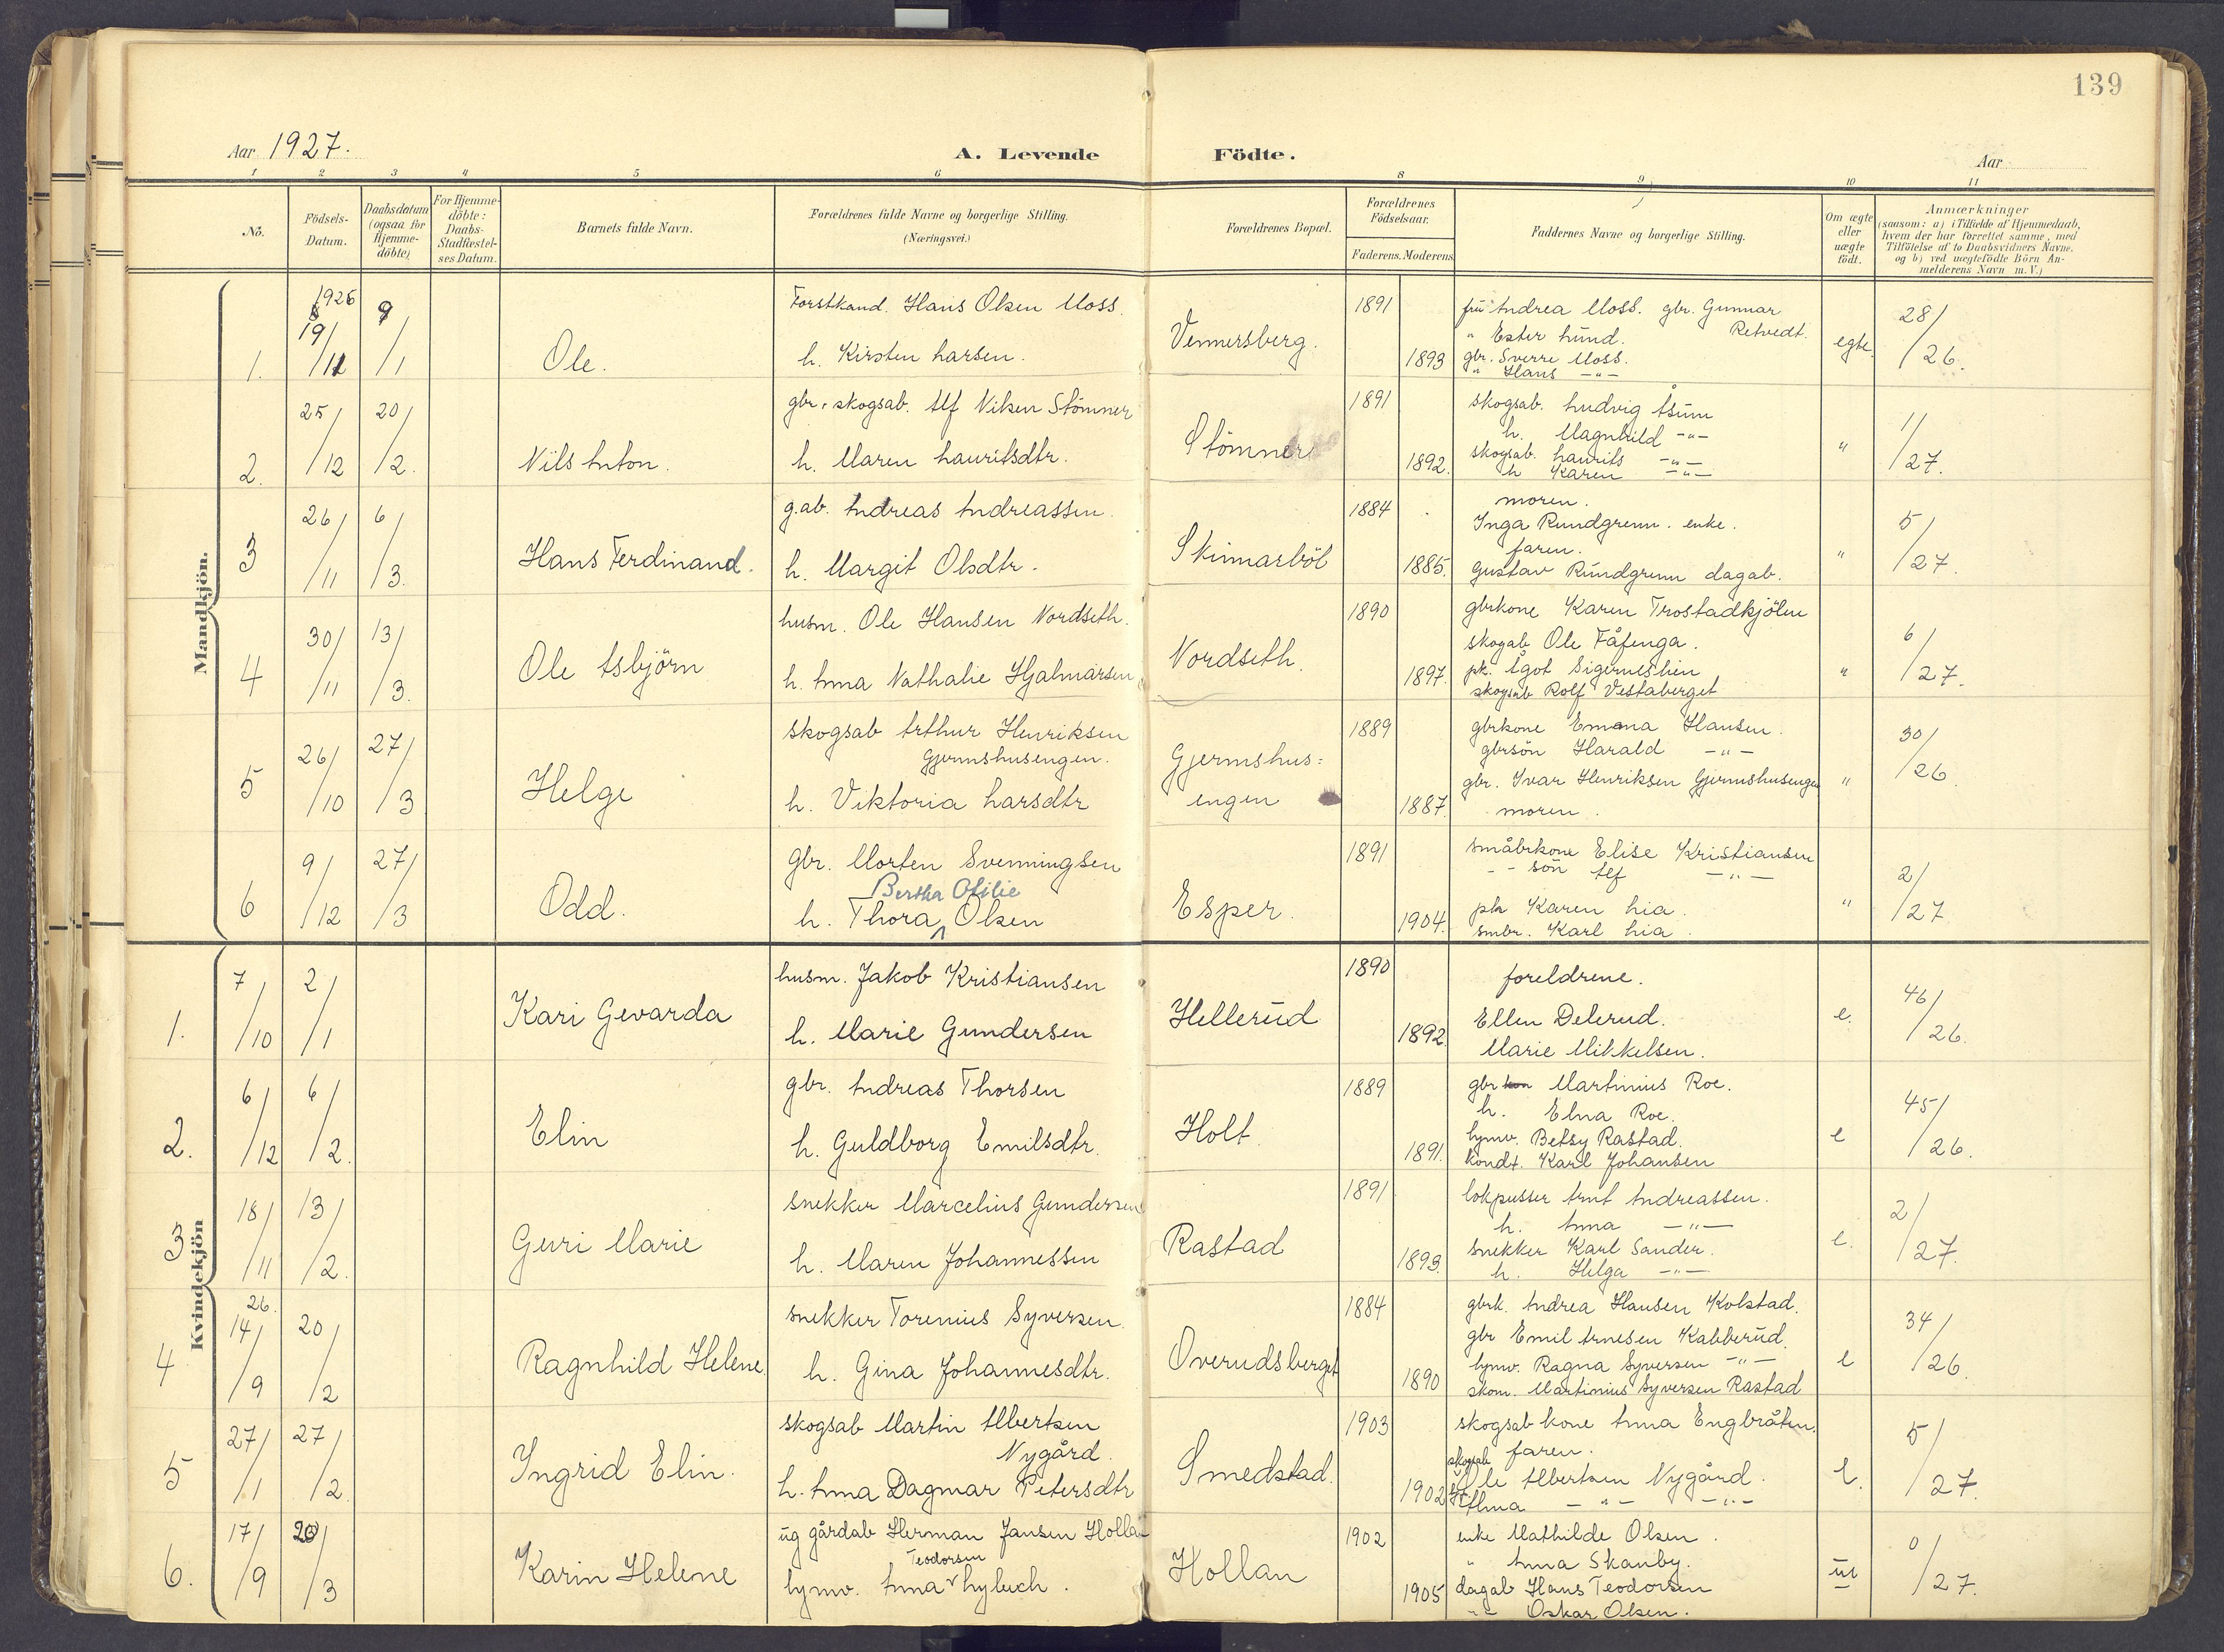 139
Aar 1927. A. Levende Födte. Aar
1 2 3 4 5 6 8 9 10 11
No.
Födsels-Datum.
Daabsdatum (ogsaa for Hjemme-döbte)
For Hjemme-döbte: Daabs-Stadfæstel-ses Datum.
Barnets fulde Navn.
Forældrenes fulde Navne og borgerlige Stilling. (Næringsvei.)
Forældrenes Bopæl.
Forældrenes Födselsaar.
Faderens. Moderens.
Faddernes Navne og borgerlige Stilling.
Om ægte eller uægte födt.
Anmærkninger
(saasom: a) i Tilfælde af Hjemmedaab, hvem der har forrettet samme, med Tilföielse af to Daabsvidners Navne, og b) ved uægtefödte Börn An-melderens Navn m.V.)
Mandkjön.
1. 1926 19/11 9/1 Ole.
Forstkand. Hans Olsen Moss.
h. Kirsten Larsen.
Vennersberg. 1891 1893
fru Andrea Moss. gbr. Gunnar Retvedt.
" Ester Lund.
gbr. Sverre Moss.
" Hans -"-
egte. 28/26.
2. 25/12 20/2. Nils Anton.
gbr. skogsab. Alf Nilsen Stömner
h. Maren Lauritsdtr.
Stömner 1891 1892.
skogsab. Ludvig Åsum
h. Magnhild -"-
skogsab. Laurits -"-
h Karen -"-
" 1/27.
3 26/11 6/3. Hans Ferdinand.
g.ab. Andreas Andreassen.
h. Margit Olsdtr.
Skinnarböl 1884 1885.
moren.
Inga Rundgrenn. enke.
faren.
Gustav Rundgrenn dagab.
" 5/27.
4 30/11 13/3. Ole Asbjörn
husm. Ole Hansen Nordseth.
h. Anna Nathalie Hjalmarsen
Nordseth. 1890 1897.
gbrkone Karen Trostadkjölen
skogab Ole Fåfenga.
pk. Ågot Sigerneslien
skogsab Rolf Vestaberget
" 6/27.
5 26/10 27/3 Helge
skogsab Arthur Henriksen
Gjermshusengen.
h. Viktoria Larsdtr
Gjermshus=
engen 1889 1887.
gbrkone Emma Hansen.
gbrsön Harald -"-
gbr. Ivar Henriksen Gjermshusengen
moren.
" 30/26.
6 9/12 27/3 Odd.
gbr. Morten Svenningsen
Bertha Otilie
h. Thora Olsen
Esper. 1891 1904.
småbrkone Elise Kristiansen
-- sön Alf -"-
pk Karen Lia.
smbr. Karl Lia.
" 2/27
Kvindekjön
1. 7/10 2/1 Kari Gevarda
husm. Jakob Kristiansen
h. Marie Gundersen
Hellerud 1890 1892.
foreldrene.
Ellen Delerud.
Marie Mikkelsen.
e. 46/26.
2. 6/12 6/2. Elin
gbr. Andreas Thorsen
h. Guldborg Emilsdtr.
Holt. 1889 1891.
gbr Martinius Roe.
h. Elna Roe.
tjmv. Betsy Rastad.
kondt. Karl Johansen
e 45/26.
3 18/11 13/2. Guri Marie
snekker Marcelius Gundersen
h. Maren Johannessen
Rastad 1891 1893.
lokpusser Arnt Andreassen.
h. Anna -"-
snekker Karl Sander.
h. Helga -"-
e. 2/27.
4 26. 14/9 20/2 Ragnhild Helene.
snekker Torenius Syversen.
h. Gina Johannesdtr.
Overudsberget 1884 1890
gbrk. Andrea Hansen Kolstad.
gbr Emil Arnesen Kabberud.
tjmv. Ragna Syversen -"-
skom. Martinius Syversen Rastad
e 34/26.
5 27/1 27/2. Ingrid Elin.
skogsab Martin Albertsen
Nygård.
h. Anna Dagmar Petersdtr
Smedstad. 1903 1902
skogsab kone Anna Engbråten.
faren.
skogsab Ole Albertsen Nygård.
Alma -"- -"-
e. 5/27.
6. 17/9 20/3 Karin Helene
ug gårdab Herman Jansen Hollan
Teodorsen
tjmv. Anna Nybuch.
Hollan 1902 1905
enke Mathilde Olsen.
" Anna Skanby.
dagab Hans Teodorsen
-"- Oskar Olsen.
ue 0/27.